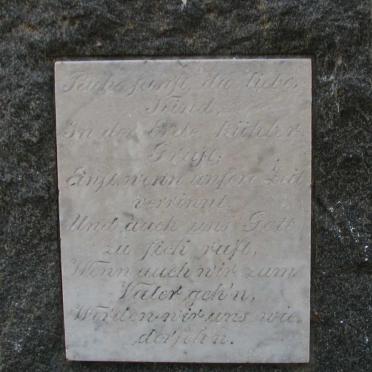 Ruhe sanft du liebes
Kind,
In der Erde kühler
Gruft,
Einst wenn unsere Zeit
verrinnt
Und auch uns Gott
zu sich ruft,
Wenn auch wir zum
Vater geh'n,
Werden wir uns wie
derseh'n.